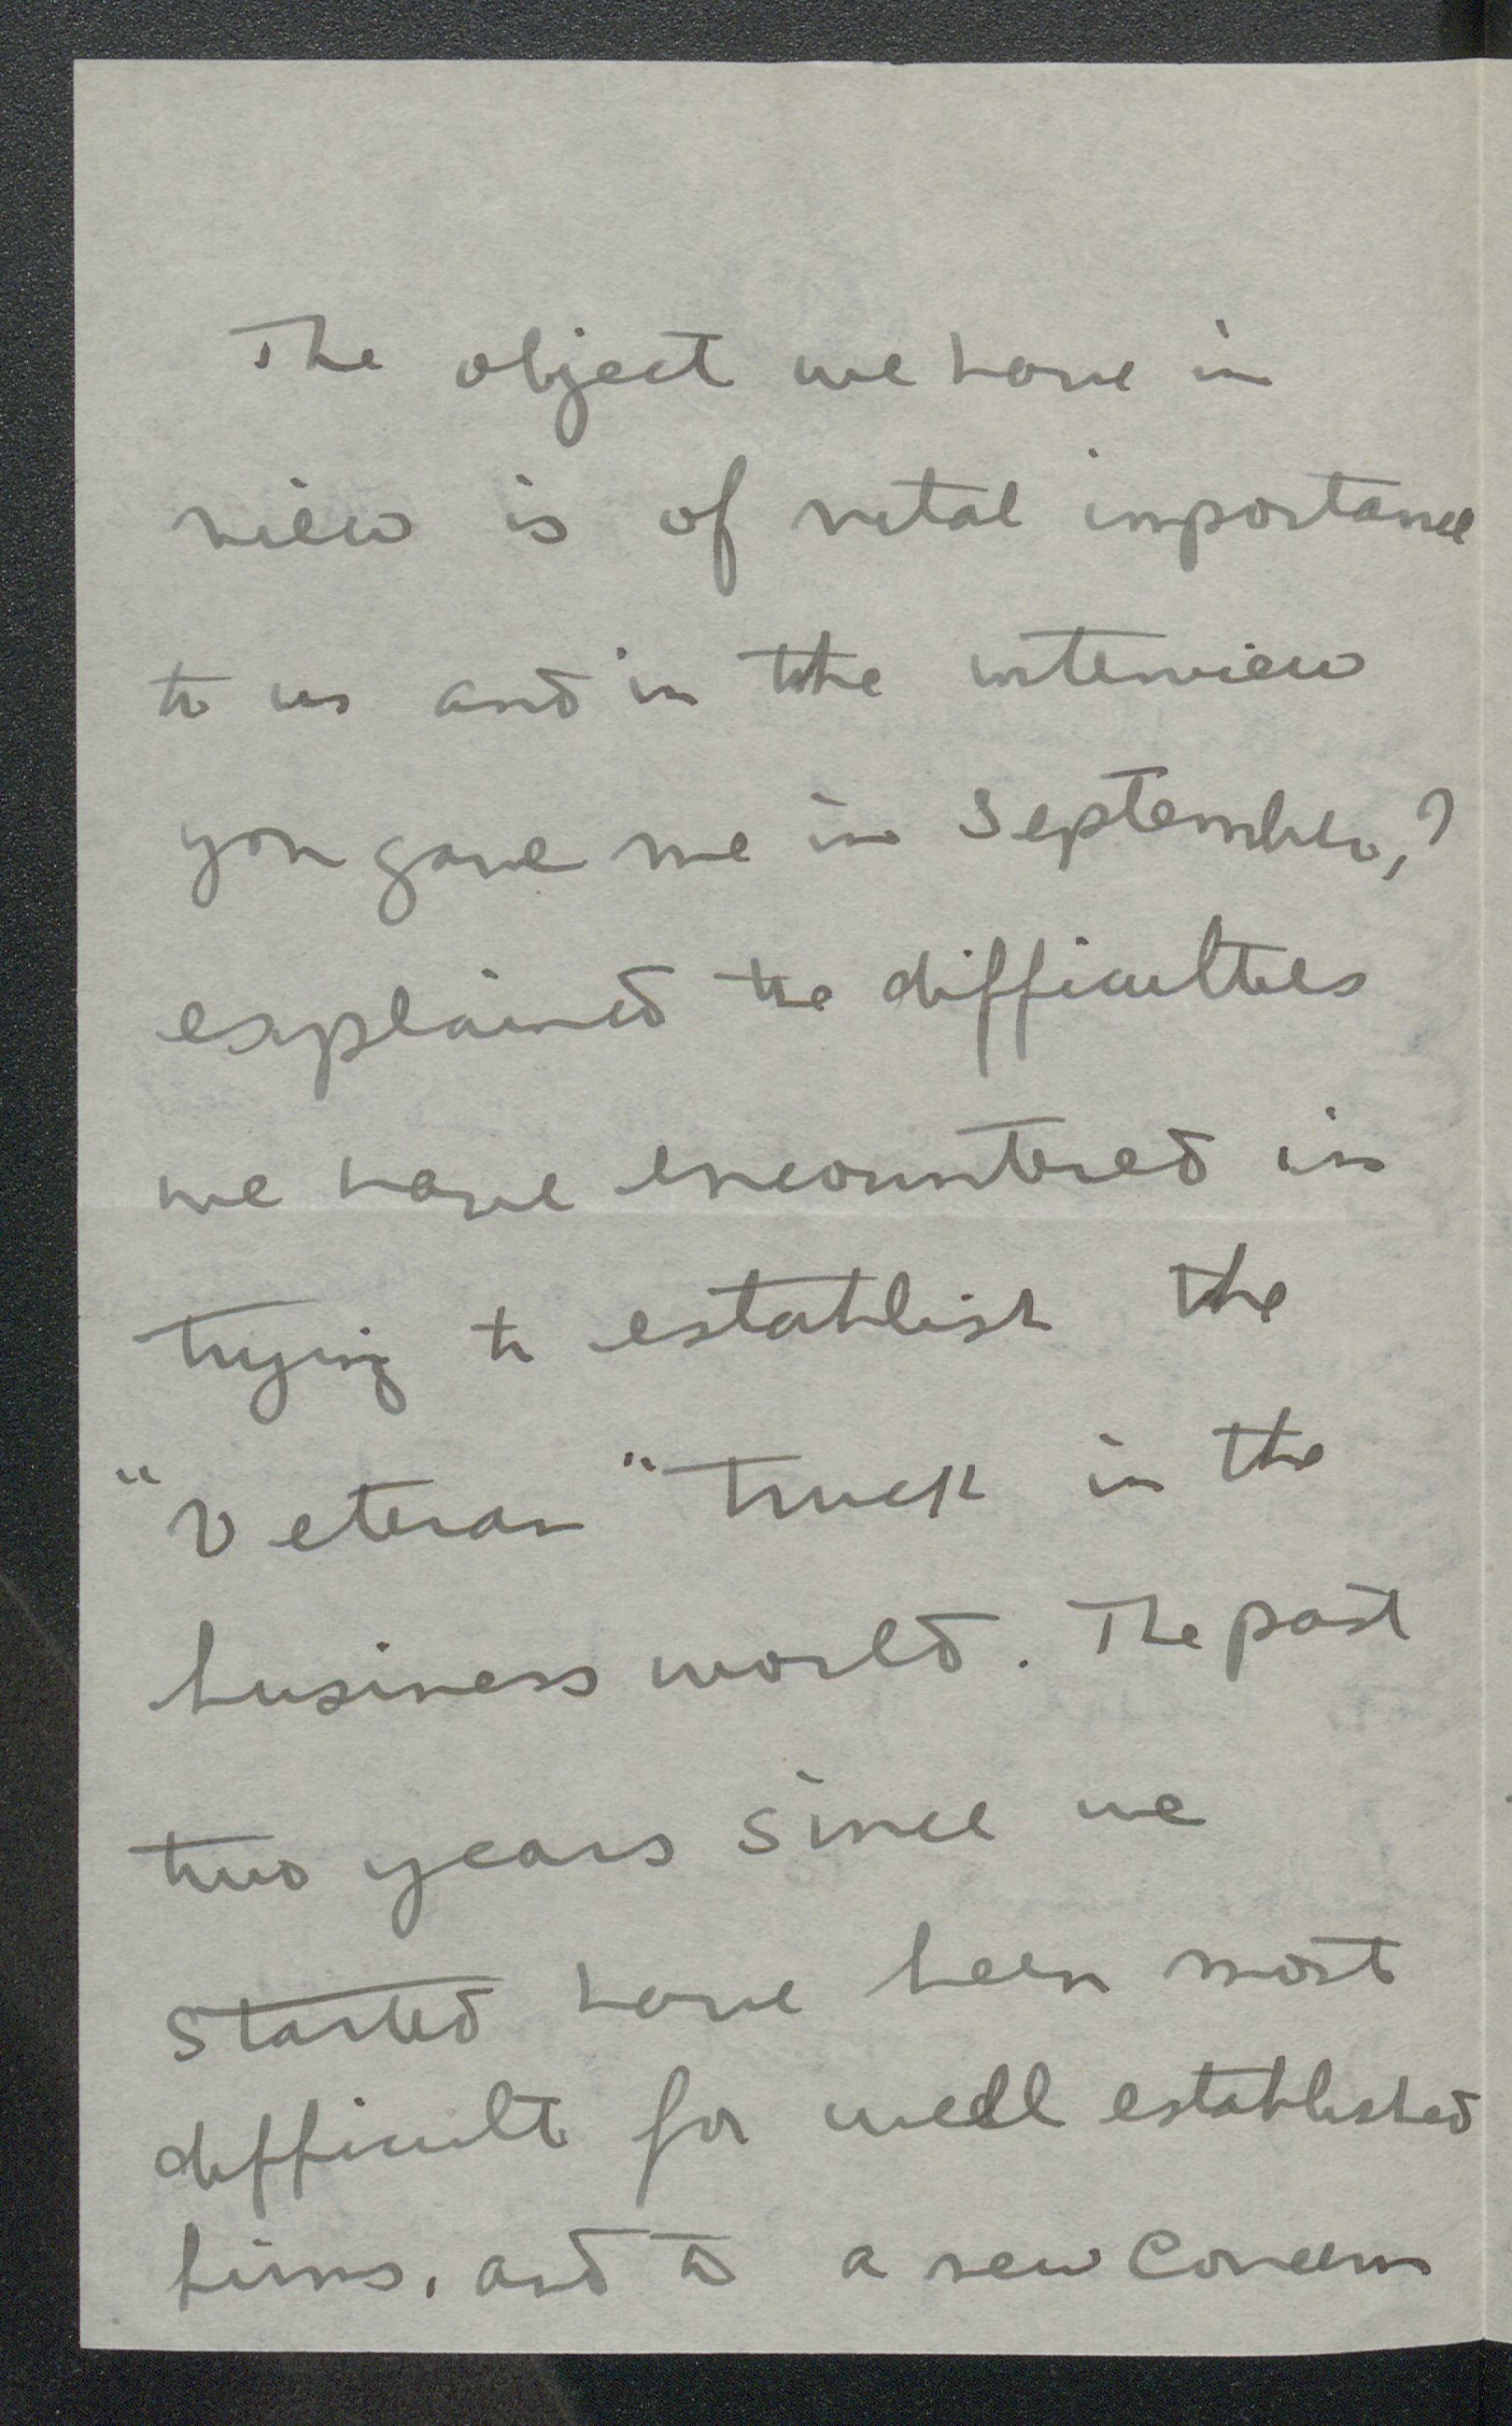 The object we have in
view is of vital importance
to us and in the interview
you gave me in September, I
explained the difficulties
we have encountered in
trying to establish the
"Veteran" truck in the
business world. The past
two years since we
started have been most
difficult for well established
firms, and to a new concern